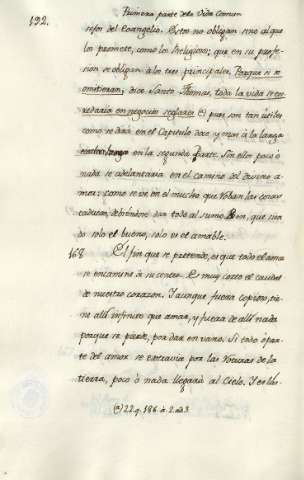 192. Primera parte de la Vida Comun
sejos del Evangelio. Estos no obligan sino al que
los promete, como los Religiosos, que en su profe-
sion se obligan à los tres principales. Porque si se
omitieran, dice Santo Thomas, toda la vida se en-
redaria en negocios seglares (a) pues son tan utiles
como se dirà en el Capitulo doce y mas à la larga
en la segunda Parte. Sin ellos poco ò
nada se adelantaria en el camino del divino a-
mor: como se ve en el mucho, que roban las cosas
caducas, debiendose dar todo al sumo Bien, que sien-
do solo el bueno, solo es el amable.
168 El fin que se pretende, es que todo el amor
se encamine à su centro. Es muy corto el caudal
de nuestro corazon. Y aunque fuera copioso, tie-
ne allì infinito que amar, y fuera de allì nada
porque se pierde, por dar en vano. Si todo ò par-
te del amor se extravia por las de la
tierra, poco ò nada llegarà al Cielo. Y es lás-
(a) 22. q. 186. à. 2. ad 3